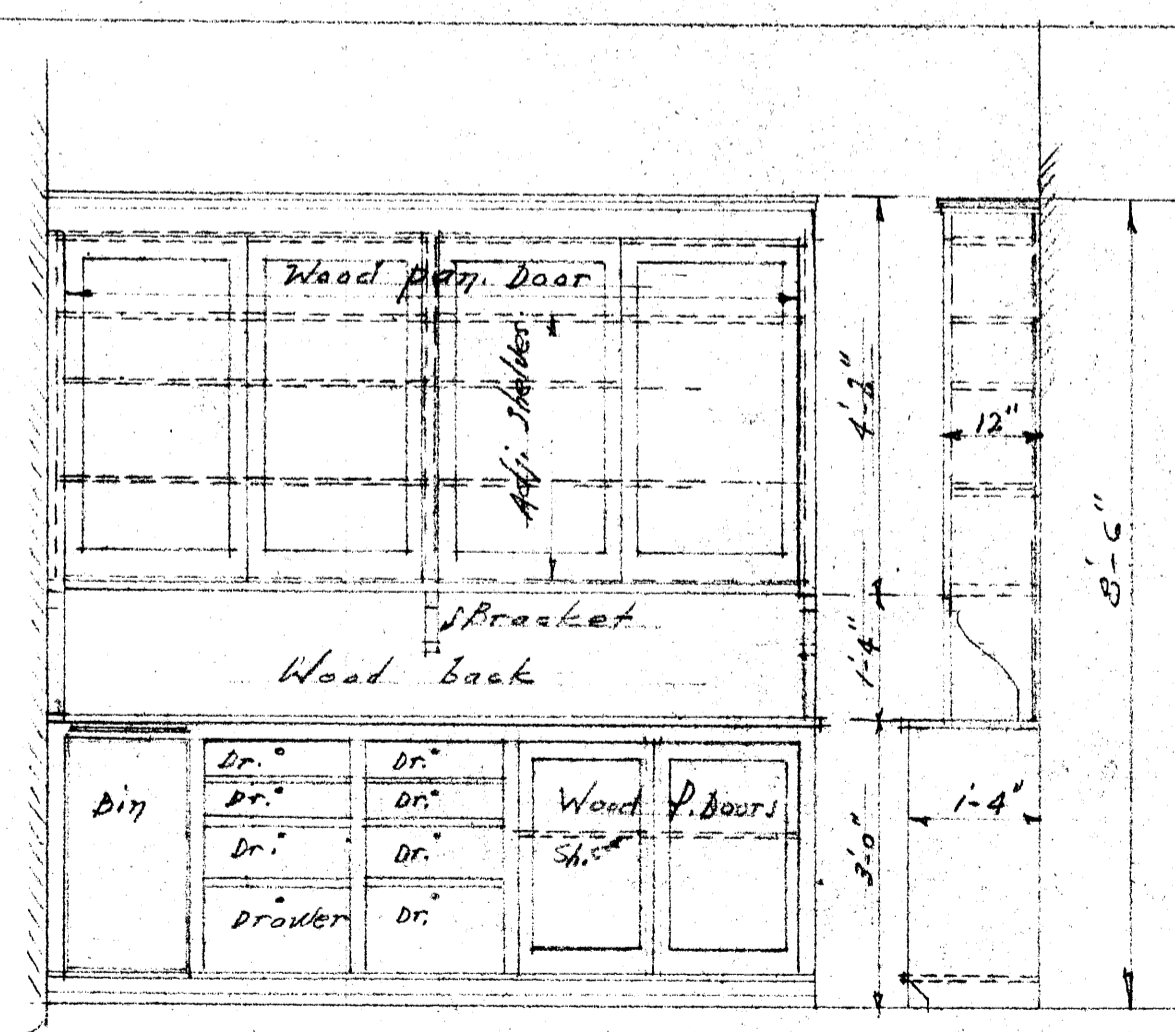 Wood pan. Door
Adj. Shelves.
Bracket
Wood back
Bin
Dr.
Dr.
Dr.
Drawer
Dr.
Dr.
Dr.
Dr.
Wood P. Doors
Sh.
4'-2"
1'-4"
3'-0"
12"
1'-4"
8'-6"